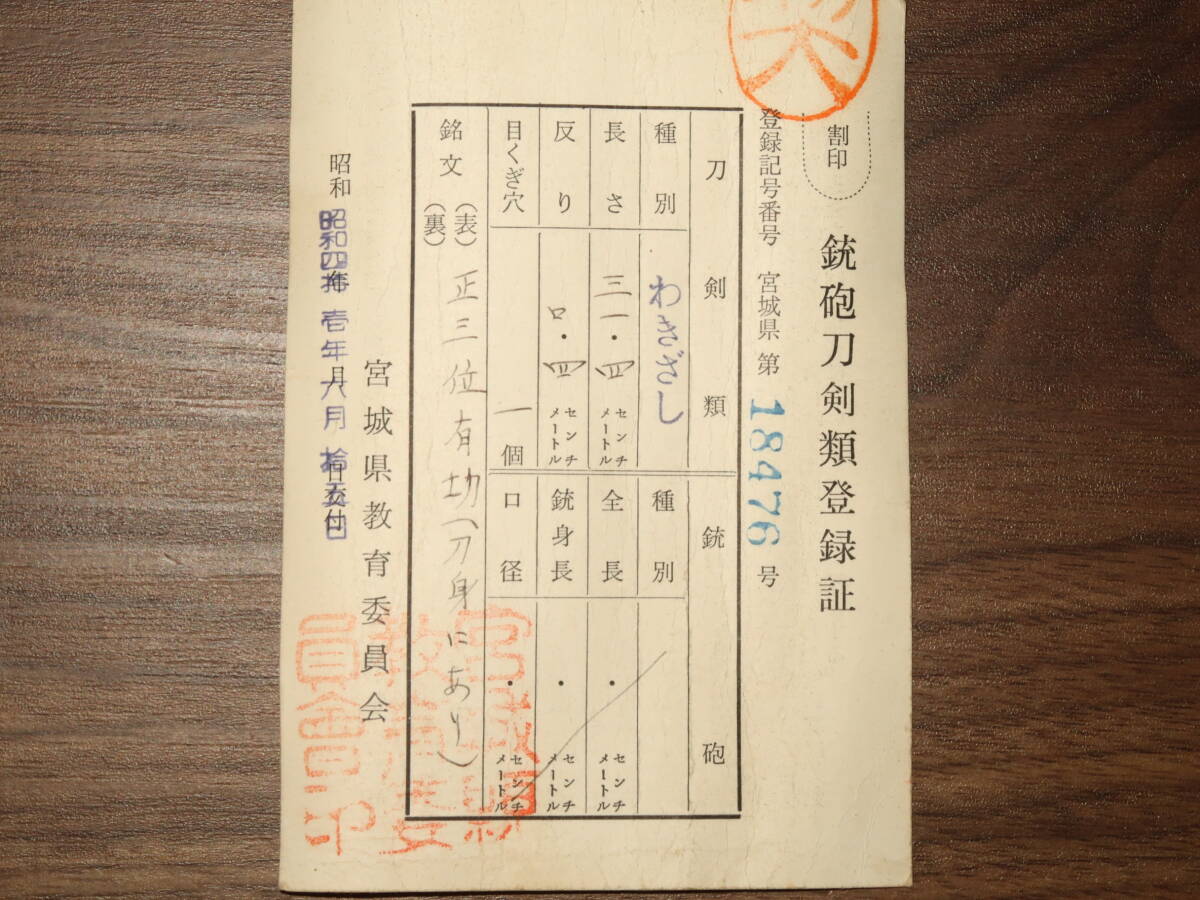 割印
銃砲刀剣類登録証
登録記号番号 宮城県 第 18476 号
刀剣類
銃砲
種別 わきざし
種別
長さ 三一・四 センチメートル
全長 ・ センチメートル
反り 〇・四 センチメートル
銃身長 ・ センチメートル
目くぎ穴 一個
口径 ・ センチメートル
銘文 (表) 正三位有功(刀身にあり)
(裏)
宮城県教育委員会
昭和 昭和四拾壱年六月拾五日 交付
宮城県
教育委
員会印